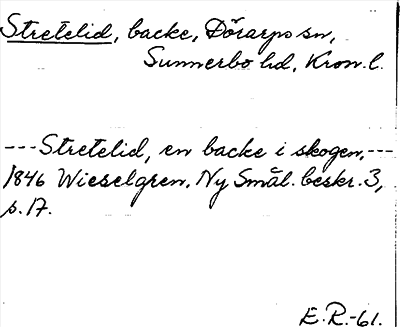 Stretelid, backe, Dörarps sn,
Sunnerbo hd, Kron. l.
---Stretelid, en backe i skogen,---
1846 Wieselgren. Ny Smål. beskr. 3,
s. 17.
E.R.-61.